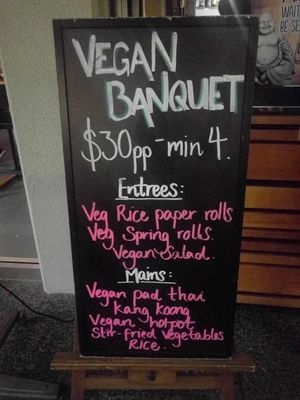 VEGAN
BANQUET
$30pp - min 4.
Entrees:
Veg Rice paper rolls
Veg Spring rolls.
Vegan Salad.
Mains:
Vegan pad thai
Kang Koong
Vegan hotpot
Stir-fried vegetables
RICE.
WAIT
BE SE